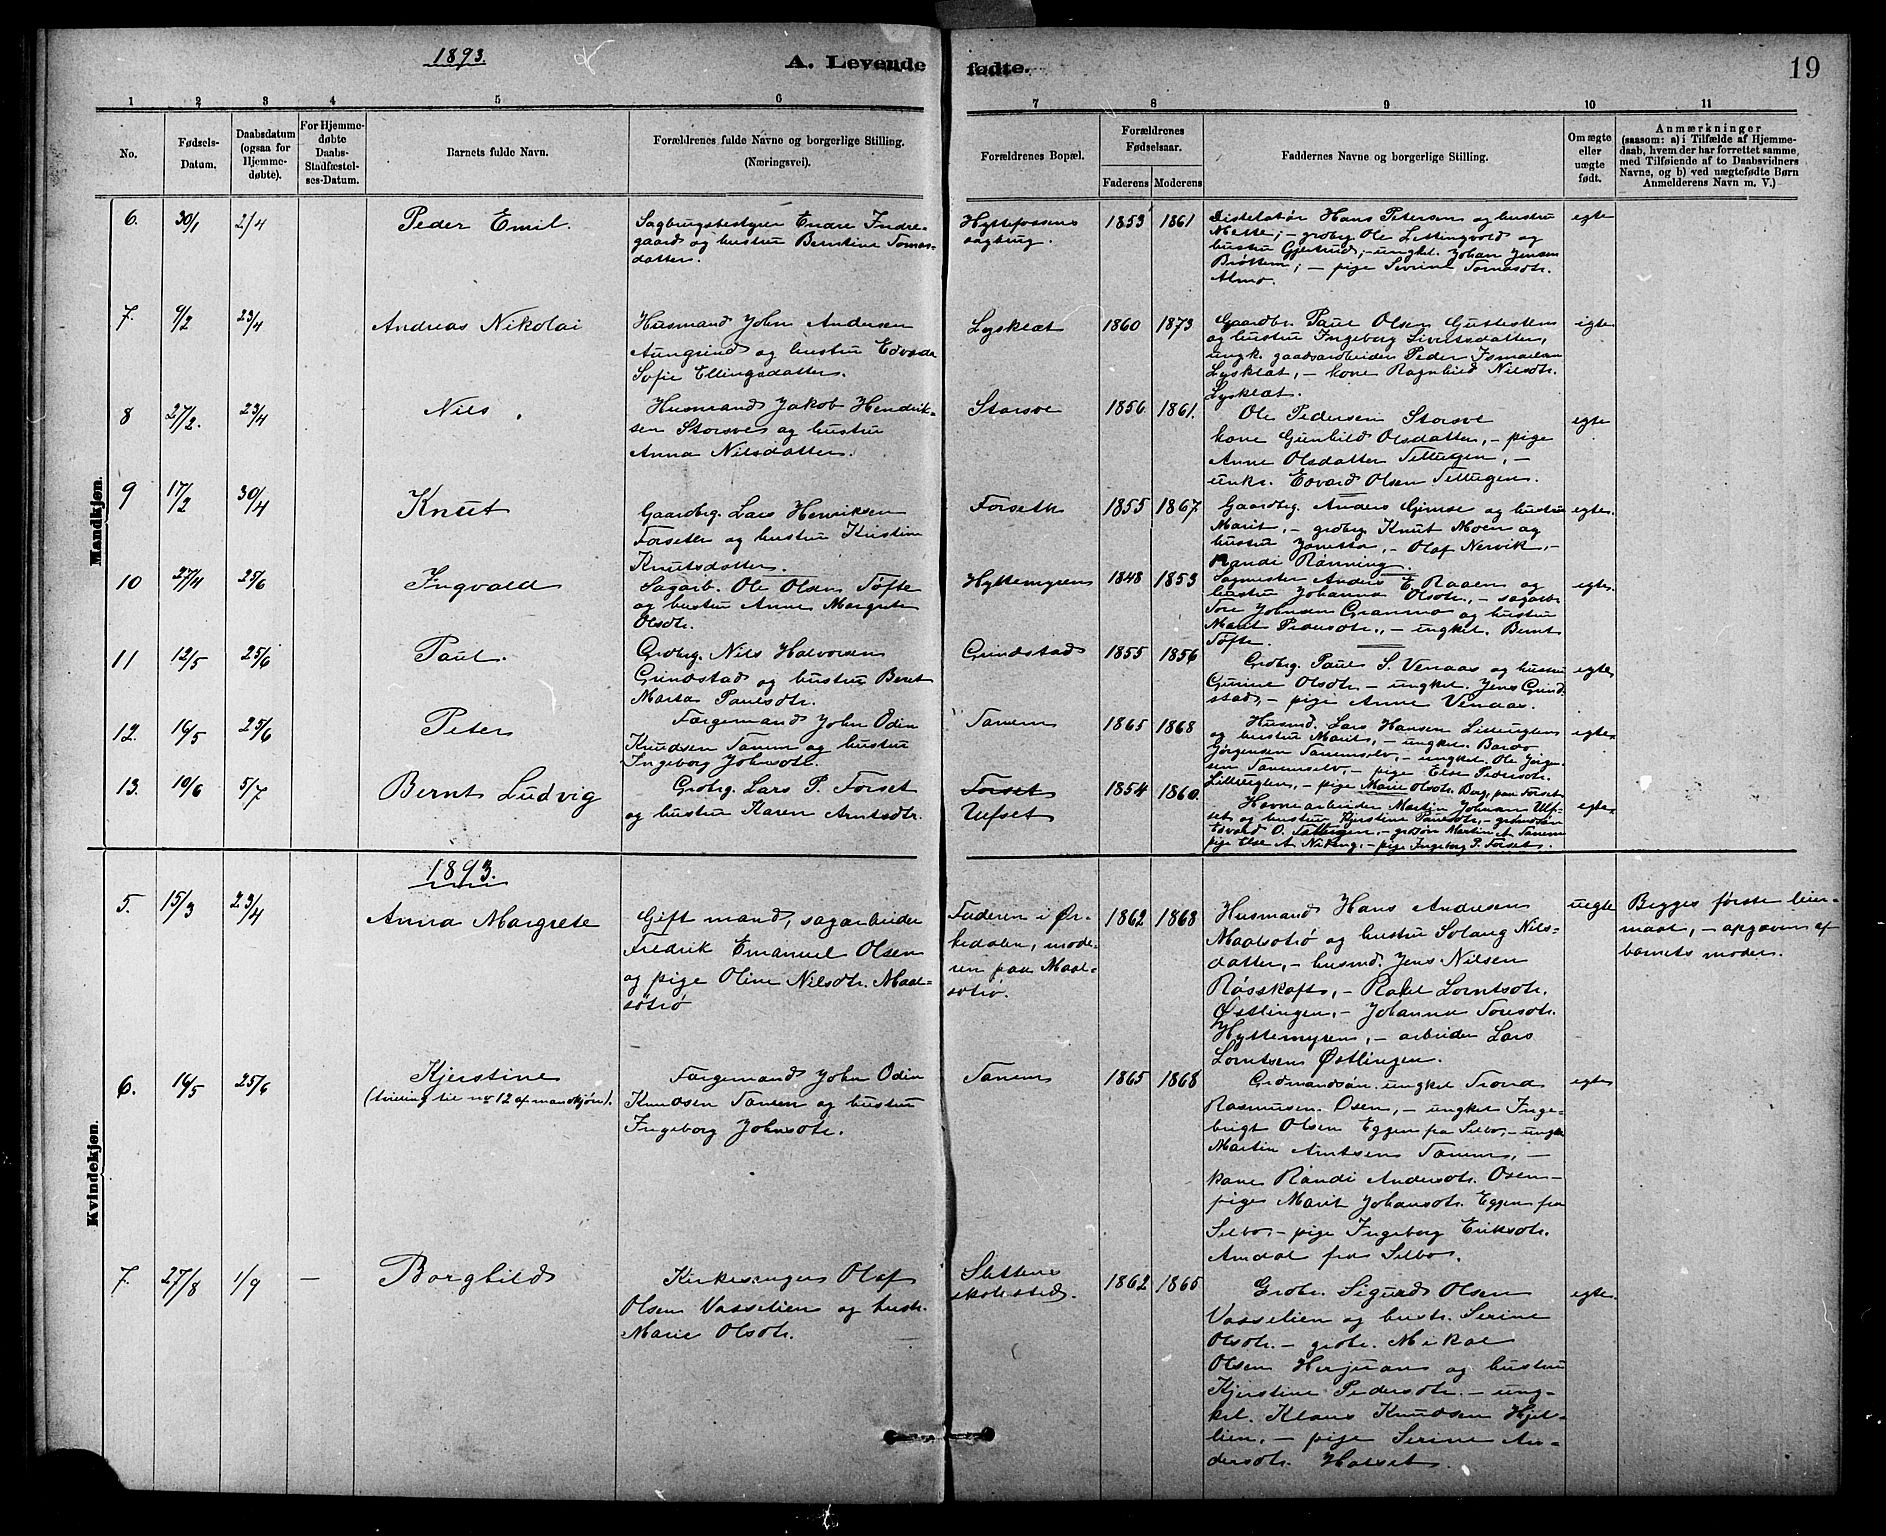 1893.
A. Levende fødte.
19
1 2 3 4 5 6 7 8 9 10 11
No.
Fødsels-
Datum.
Daabsdatum
(ogsaa for
Hjemme-
døbte).
For Hjemme-
døbte
Daabs-
Stadfæstel-
ses-Datum.
Barnets fulde Navn.
Forældrenes fulde Navne og borgerlige Stilling.
(Næringsvei).
Forældrenes Bopæl.
Forældrenes
Fødselsaar.
Faderens Moderens
Faddernes Navne og borgerlige Stilling.
Om ægte
eller
uægte
født.
Anmærkninger
(saasom: a) i Tilfælde af Hjemme-
daab, hvem der har forrettet samme,
med Tilføiende af to Daabsvidners
Navne, og b) ved uægtefødte Børn
Anmelderens Navn m. V.)
Mandkjøn.
6. 30/1 2/4 Peder Emil.
Sagbrugsbestyrer Endre Indre-
gaard og hustru Berntine Tomas-
datter.
Hyttefossens
sagbrug.
1853 1861
Hans Petersen og hustru
Mette; - grdbg Ole Lettingvold og
hustru Gjertrud, - ungkel. Johan Jensen
Brøttem; - pige Sevrine Tomasdtr.
Almo.
egte
7. 9/2 23/4 Andreas Nikolai
Husmand John Andersen
Aungrind og hustru Edvarda
Sofie Ellingsdatter.
Lysklæt
1860 1873
Gaardbr. Paul Olsen
og hustru Ingeborg Sivertsdatter,
ungk. gaardsarbeider Peder Ismaelsen
Lysklæt, - kone Ragnhild Nilsdtr.
Lysklæt.
egte
8 27/2. 23/4 Nils.
Husmand Jakob Hendrik-
sen Storsve og hustru
Anna Nilsdatter.
Storsve
1856 1861.
Ole Pedersen Storsve
kone Gunhild Olsdatter, - pige
Anne Olsdatter Tellugen, -
unkr. Edvard Olsen Tellugen.
egte
9 17/2 30/4 Knut
Gaardbrg. Lars Henriksen
Forseth og hustru Kristine
Knutsdatter.
Forseth
1855 1867
Gaardbrg. Anders Gjimse og hustru
Marit, - grdbrg Knut Moen og
hustru Jonetta, - Olaf Nervik, -
Randi Rønning.
egte
10 27/4 25/6 Ingvald
Sagarb. Ole Olsen Tøfte
og hustru Anne Margrete
Olsdtr.
Hyttemyren
1848 1853
Sagmester Anders E. Raaen og
hustru Johanna Olsdtr., - sagarb.
Tore Johnsen Granmo og hustru
Marit Pedersdtr., - ungkel. Bernt
Tøfte.
egte
11 12/5 25/6 Paul.
Grdbrg. Nils Halvorsen
Grindstad og hustru Beret
Marta Paulsdtr.
Grindstad
1855 1856
Grdbrg. Paul S. Venaas og hustru
Gurine Olsdtr. - ungkel. Jens Grind-
stad, - pige Anne Venaas.
egte
12. 16/5 25/6 Peter
Færgemand John Odin
Knudsen Tanem og hustru
Ingeborg Johnsdtr.
Tanem
1865 1868
Husmd. Lars Hansen Lilleuglen
og hustru Marit, - ungkel. Bardo
Jørgensen Tanemselv, - ungkel. Ole Jørgen-
sen Tanemselv, - pige Else Pedersdtr.
Lilleuglen, - pige Marie Olsdtr. Berg, paa Forset
egte
13. 10/6 5/7 Bernt Ludvig
Grdbrg. Lars P. Forset
og hustru Karen Arntsdtr.
Forset
Ulfset
1854 1860.
Havnearbeider Martin Johnsen Ulf-
set og hustru Kjerstine Paulsdtr, - grdmdsøn
Edvard O. Tellugen, - grdsøn Martin A. Tanem
pige Else A. Neking, - pige Ingeborg P. Forset.
egte
Kvindekjøn.
1893.
5. 15/3 23/4 Anna Margrete
Gift mand, sagarbeider
Fredrik Emanuel Olsen
og pige Oline Nilsdtr. Maal-
sotrø
Faderen i Ør-
kedalen, mode-
ren paa Maal-
sotrø.
1862 1868
Husmand Hans Andersen
Maalsotrø og hustru Solaug Nils-
datter, - husmd. Jens Nilsen
Røsskaft, - Rakel Lorntsdtr.
Østlingen, - Johanna Toresdtr.
Hyttemyren, - arbeider Lars
Lorntsen Østlingen.
uegte
Begges første leier-
maal, - opgaven af
barnets moder.
6. 16/5 25/6 Kjerstine
(tvilling til no 12 af mandkjøn).
Færgemand John Odin
Knudsen Tanem og hustru
Ingeborg Johnsdtr.
Tanem
1865 1868
Grdmandsøn. ungkel Trond
Rasmusen Osen, - ungkel Inge-
brigt Olsen Eggen fra Selbo, - ungk.
Martin Arntsen Tanem, -
kone Randi Andersdtr. Osen -
pige Marit Johansdtr. Eggen fra
Selbo, - pige Ingeborg Eriksdtr.
Amdal fra Selbo.
egte
7. 27/8 1/9 - Borghild
Kirkesanger Olaf
Olsen Vasselien og hustr.
Marie Olsdtr.
Slettens
skolested.
1862 1865
Grdbr. Sigurd Olsen
Vasselien og hustr. Serine
Olsdtr. - grdbr. Mikal
Olsen Herjuan og hustru
Kjerstine Pedersdtr. - ung-
kel. Klaus Knudsen Hjel-
lien, - pige Serine An-
dersdtr. Halset.
egte.